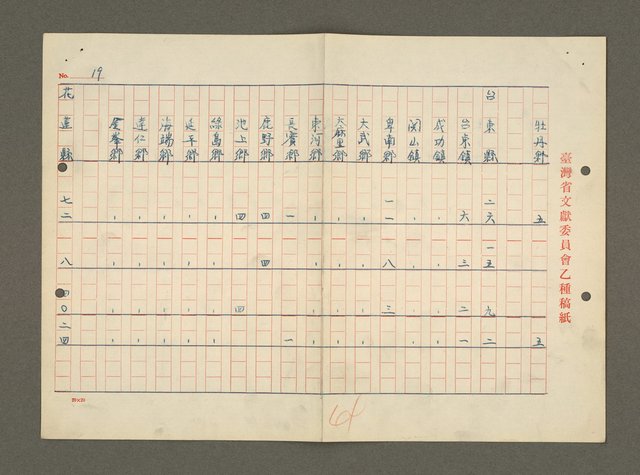 臺灣省文獻委員會乙種稿紙
No. 19
牡丹鄉 五 五
台東縣 二六 一五 九 二
台東鎮 六 三 二 一
成功鎮 , , , ,
関山鎮 , , , ,
卑南鄉 一一 八 三 ,
大武鄉 , , , ,
太麻里鄉 , , , ,
東河鄉 , , , ,
長賓鄉 一 , , 一
鹿野鄉 四 四 , ,
池上鄉 四 , 四 ,
綠島鄉 , , , ,
延平鄉 , , , ,
海端鄉 , , , ,
達仁鄉 , , , ,
金峯鄉 , , , ,
花蓮縣 七二 八 四〇 二四
20×20
64